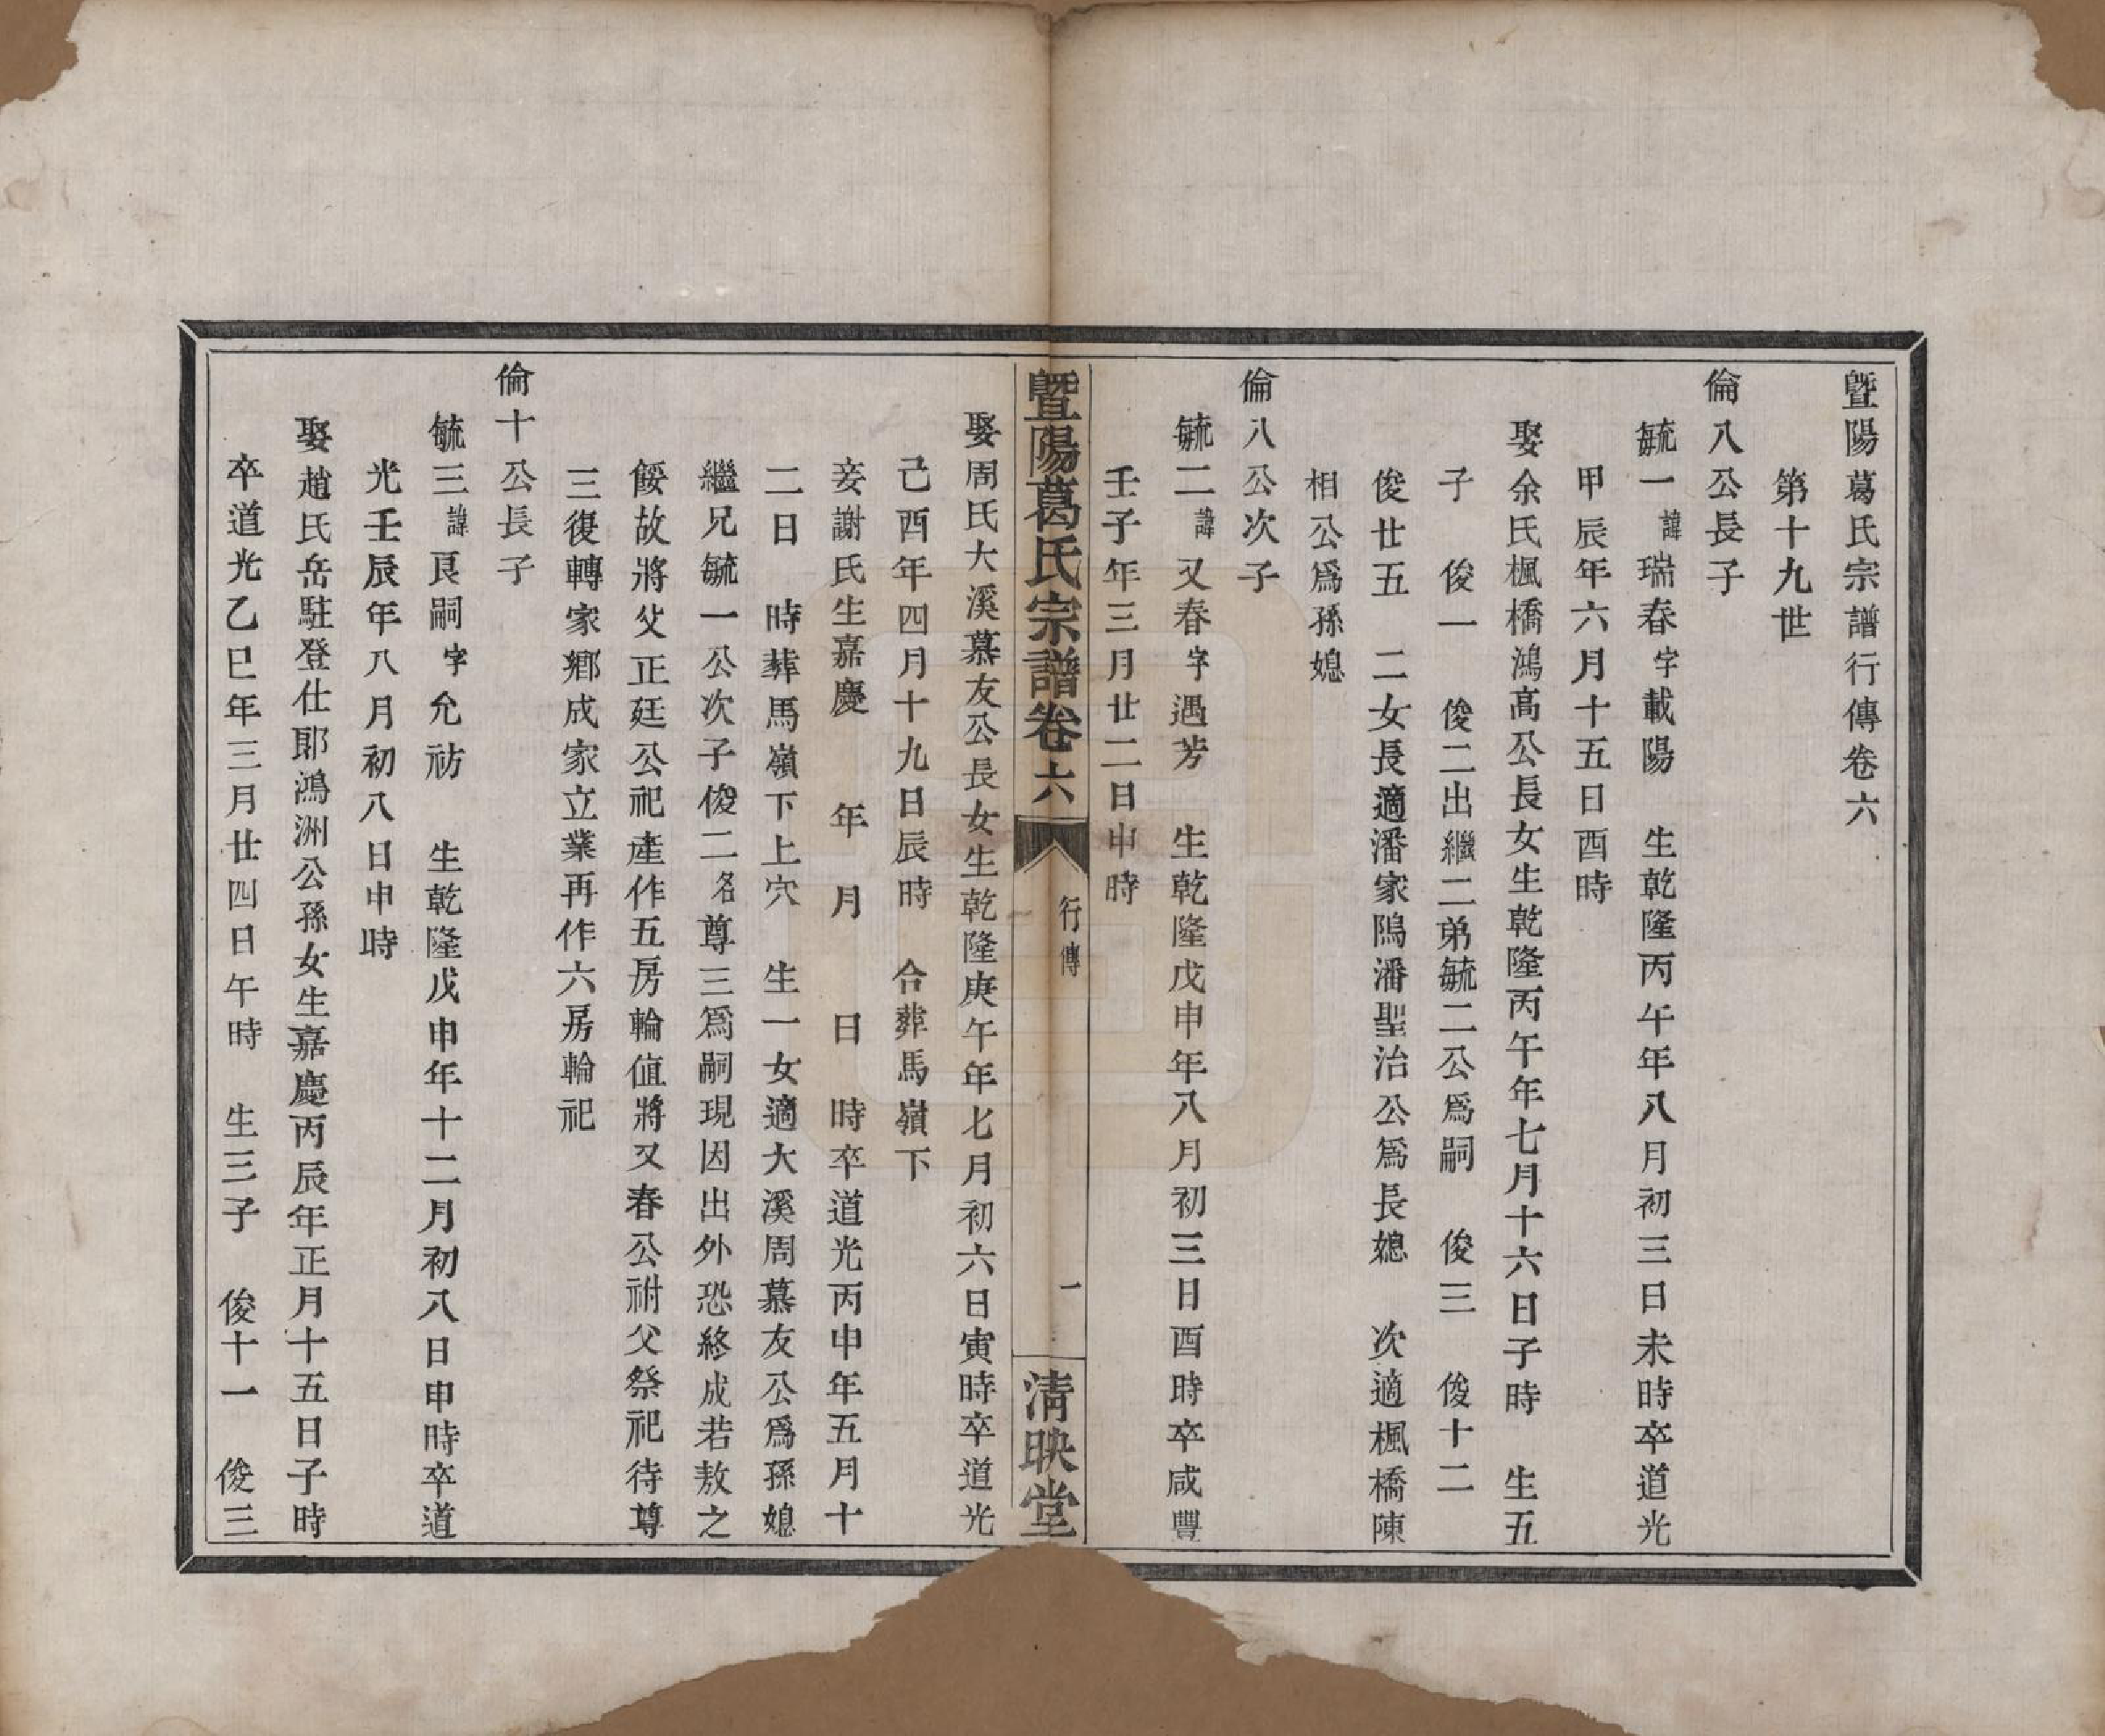 暨陽葛氏宗譜行傳卷六
第十九世
倫八公長子
毓一諱瑞春字載陽　生乾隆丙午年八月初三日未時卒道光
甲辰年六月十五日酉時
娶余氏楓橋鴻高公長女生乾隆丙午年七月十六日子時　生五
子　俊一　俊二出繼二弟毓二公爲嗣　俊三　俊十二
俊廿五　二女長適潘家隝潘聖治公爲長媳　次適楓橋陳
相公爲孫媳
倫八公次子
毓二諱又春字遇芳　生乾隆戊申年八月初三日酉時卒咸豐
壬子年三月廿二日申時
暨陽葛氏宗譜卷六　行傳　一　清映堂
娶周氏大溪慕友公長女生乾隆庚午年七月初六日寅時卒道光
己酉年四月十九日辰時　合葬馬嶺下
妾謝氏生嘉慶　年　月　日　時卒道光丙申年五月十
二日　時葬馬嶺下上穴　生一女適大溪周慕友公爲孫媳
繼兄毓一公次子俊二名尊三爲嗣現因出外恐終成若敖之
餒故將父正廷公祀產作五房輪值將又春公祔父祭祀待尊
三復轉家鄉成家立業再作六房輪祀
倫十公長子
毓三諱艮嗣字允祊　生乾隆戊申年十二月初八日申時卒道
光壬辰年八月初八日申時
娶趙氏岳駐登仕郎鴻洲公孫女生嘉慶丙辰年正月十五日子時
卒道光乙巳年三月廿四日午時　生三子　俊十一　俊三